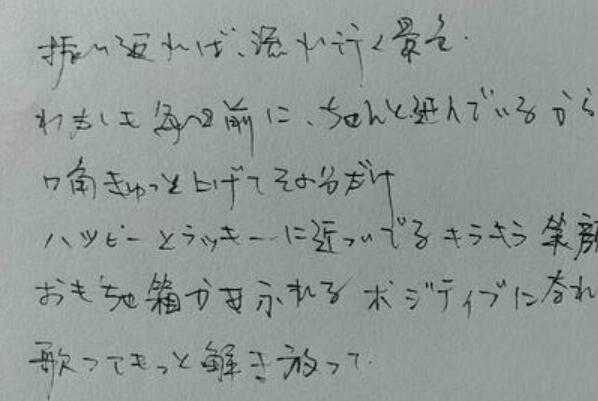 振り返れば、流れ行く景色.
わたしも毎日前に、ちゃんと進んでいるから
口角きゅっと上げてその分だけ
ハッピーとラッキーに近づいてるキラキラ笑顔
おもちゃ箱から溢れる ポジティブになれ
歌ってもっと解き放って.